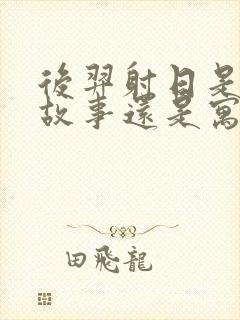 後羿射日是
故事還是寓
田飛龍